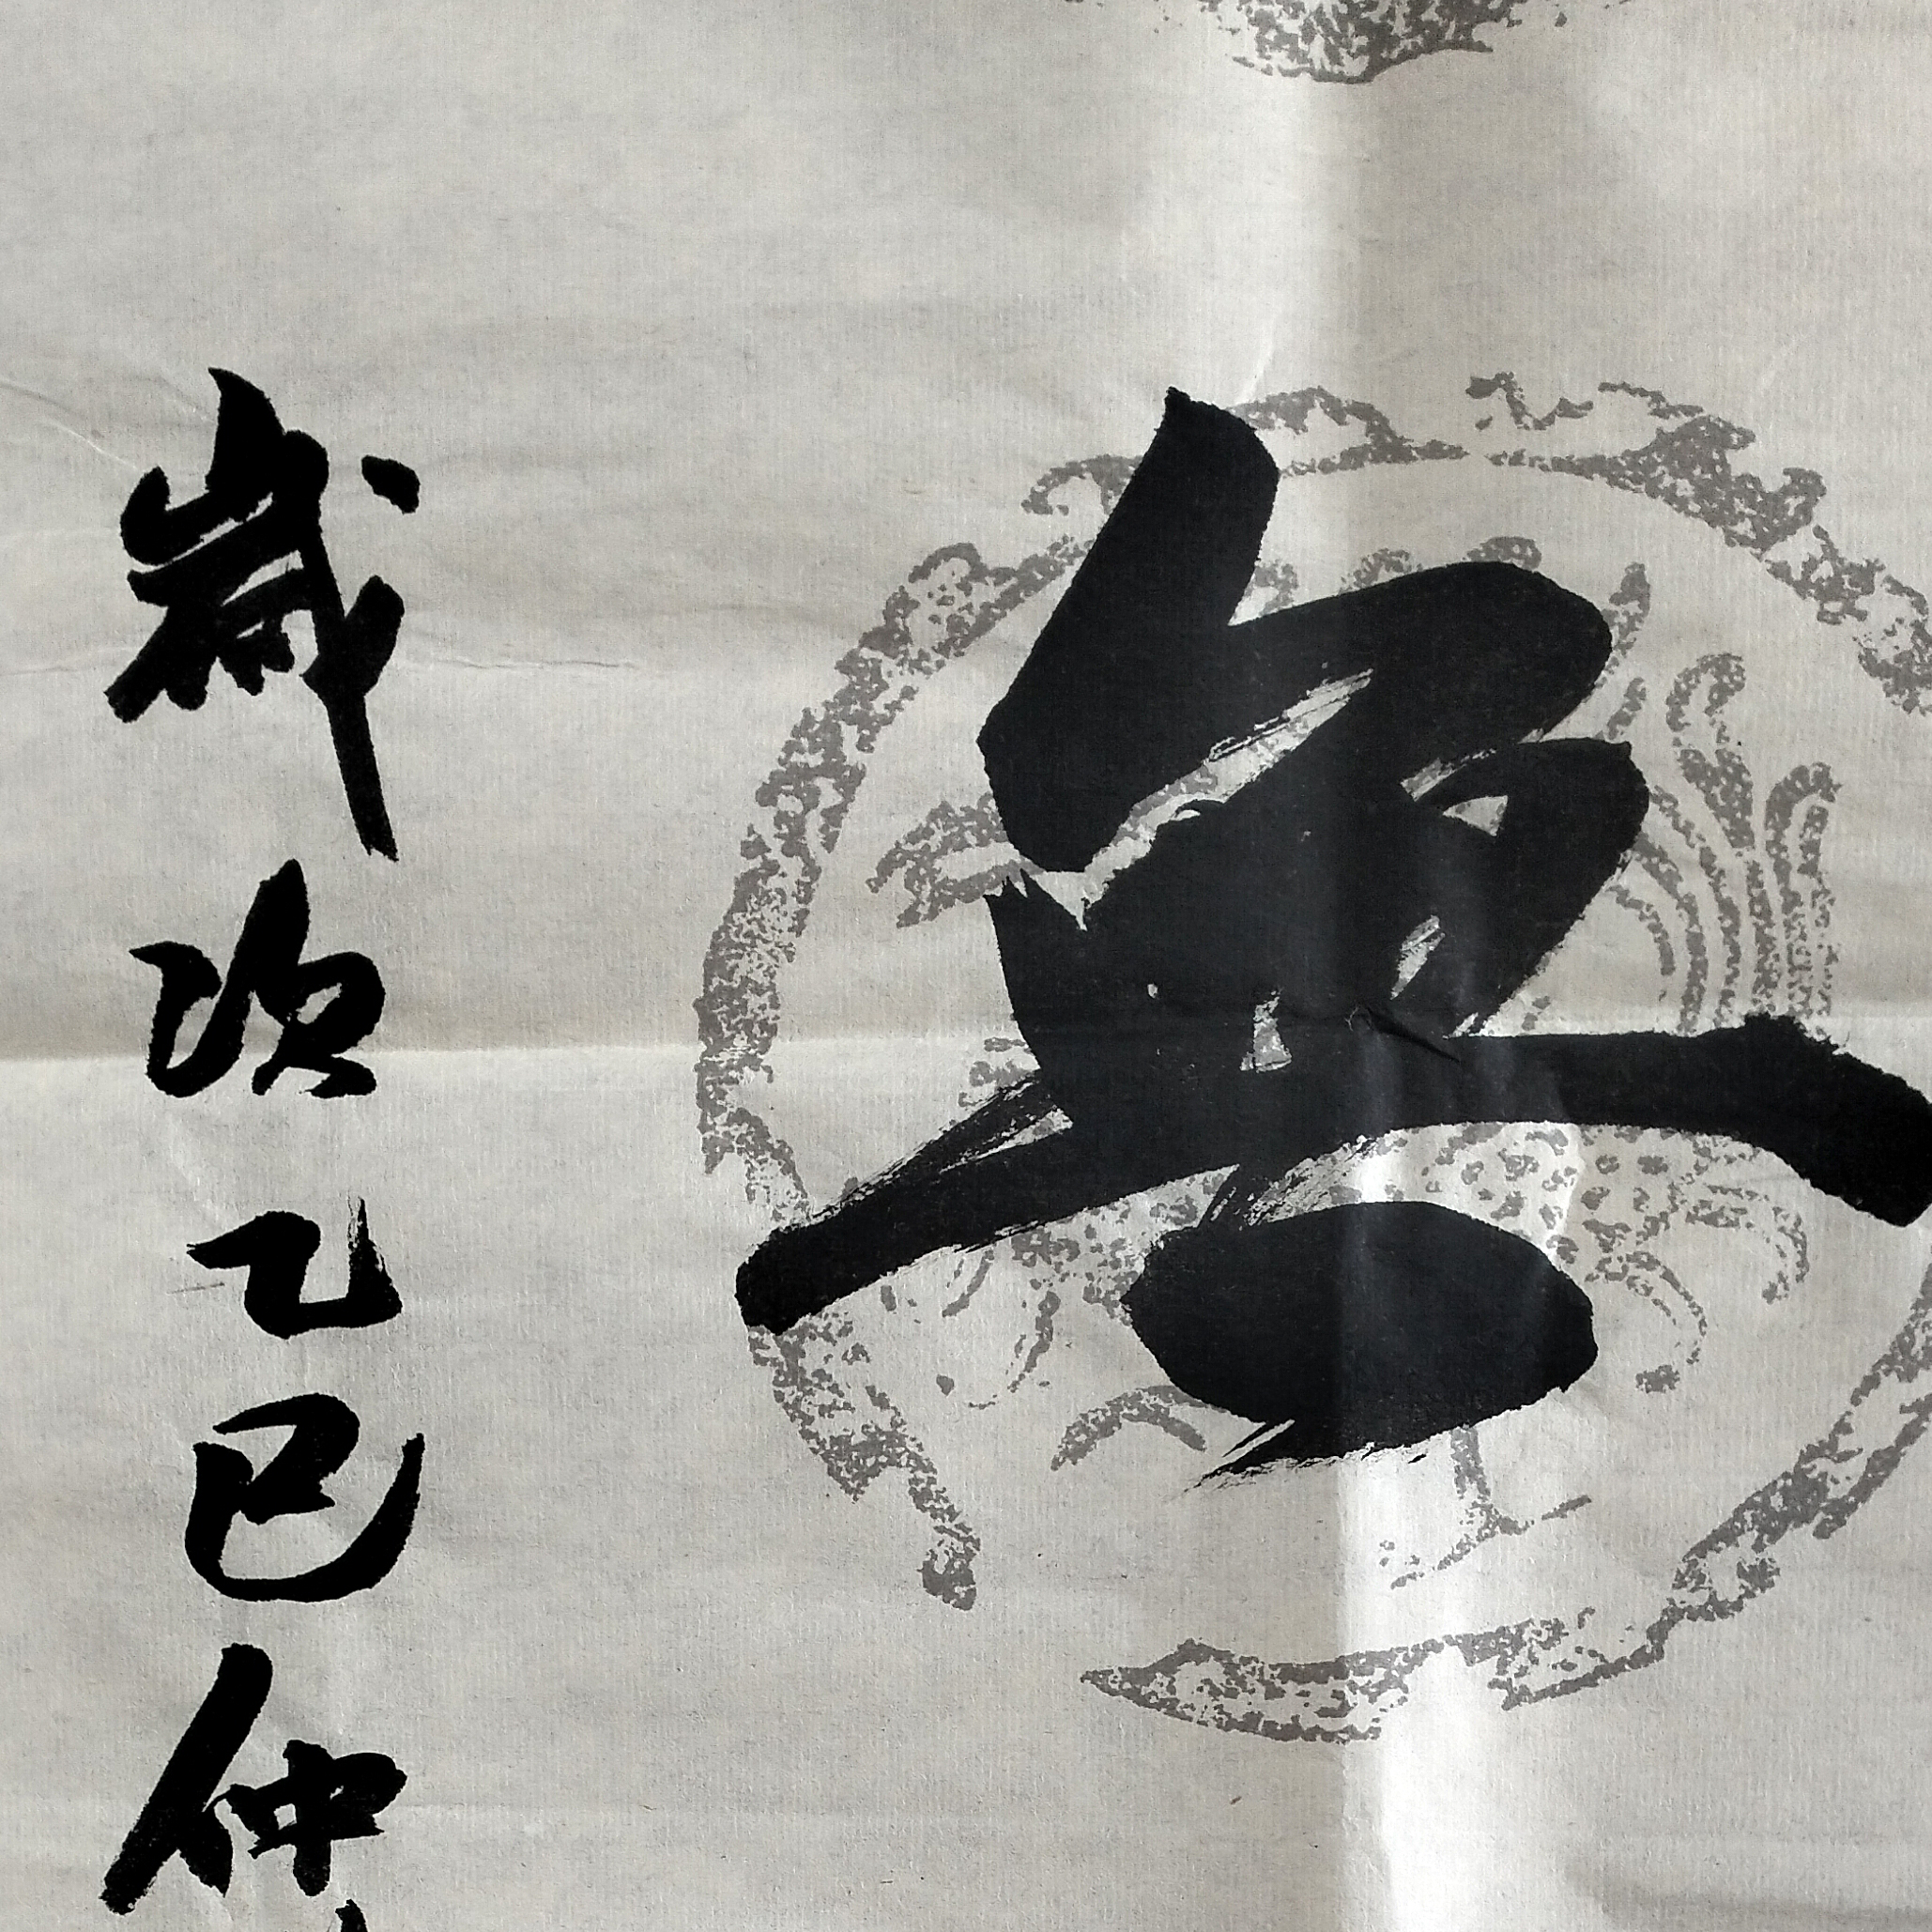 無
歲次乙巳仲